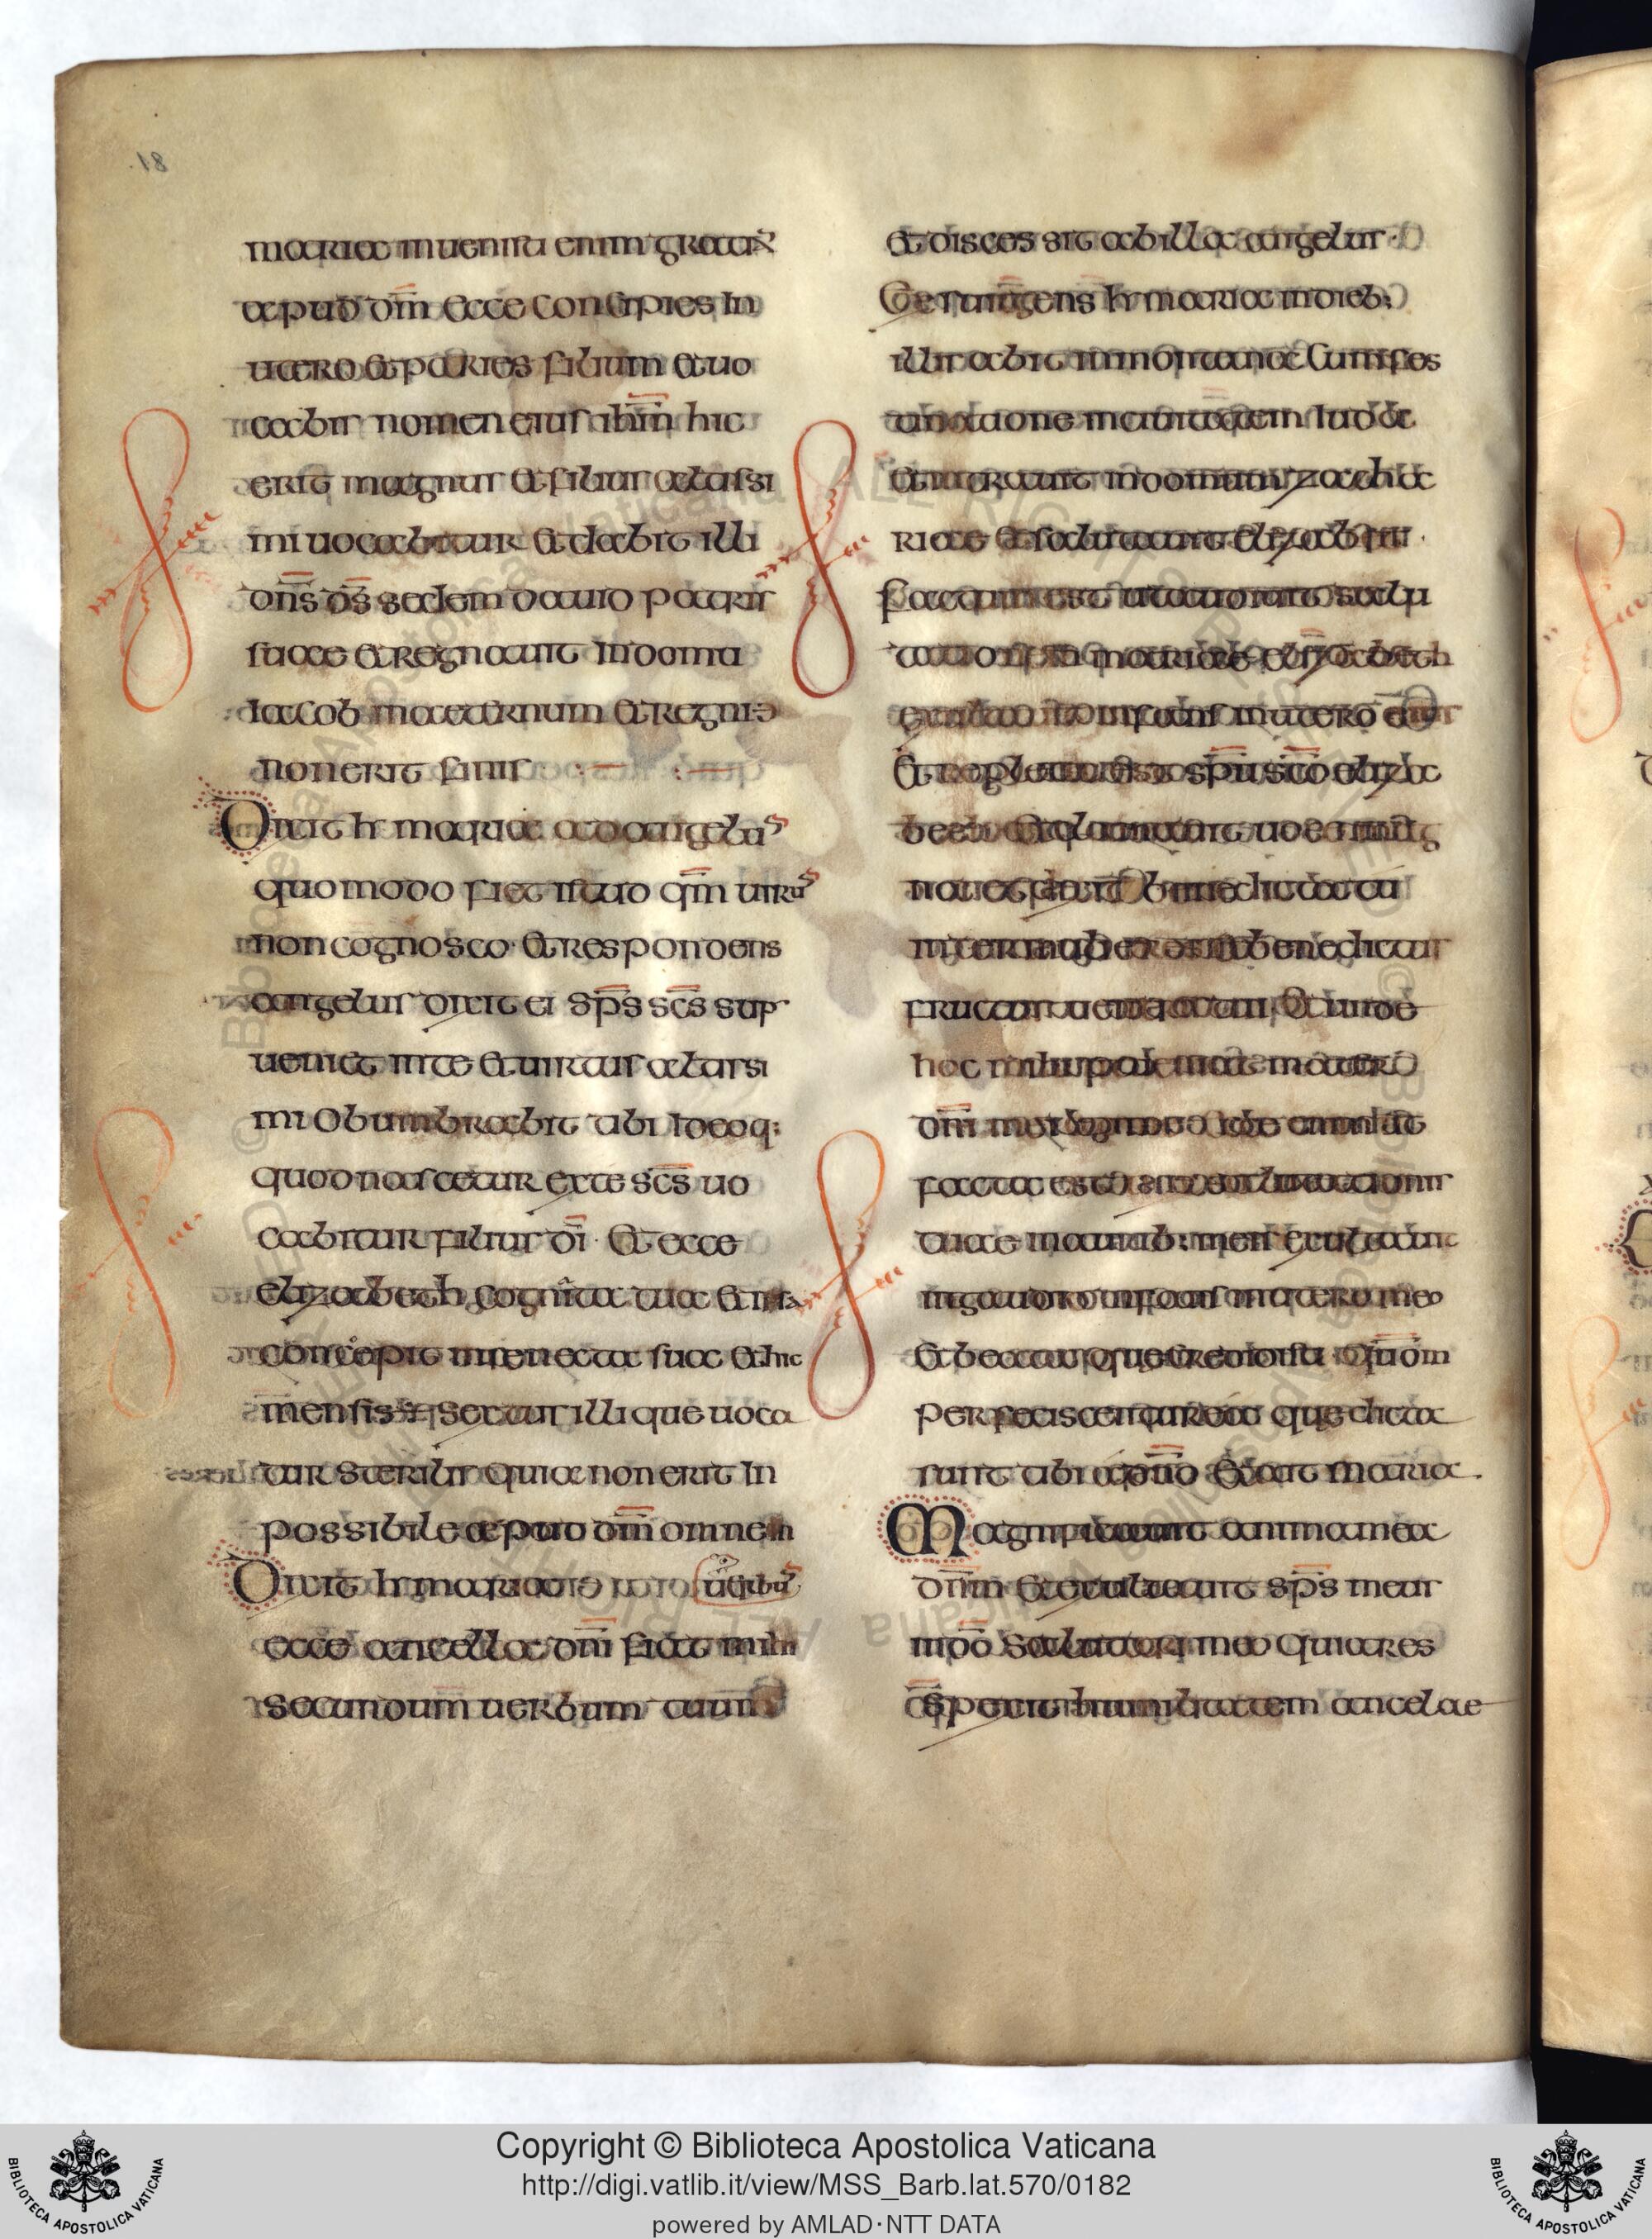 maria inuenisti enim gratiã
apud dm̄ ecce concipies in
utero et paries filium et uo
cabis nomen eius ihm̄ hic
erit magnus et filius altissi
mi uocabitur et dabit illi
dn̄s ds̄ sedem dauid patris
suae et regnauit in domu
iacob in aeternum et regni
non erit finis
Dixit h maria ad angelũ
quomodo fiet istud qm̄ uirũ
non cognosco et respondens
angelus dixit ei sp̄s sc̄s sup
ueniet in te et uirtus altissi
mi obumbrabit tibi ideoq:
quod nascetur ex te sc̄s uo
cabitur filius dī · et ecce
elizabeth cognata tua et
concepit in senecta sua et hic
mensis sextus illi que uoca
tur sterilis quia non erit in
possibile apud dm̄ omne
Dixit h maria
uerbũ
ecce ancella dm̄ fiat mihi
secundum uerbum tuum
et discessit ab illa angelus
Exsurgens h maria in dieb:
illis abiit in montana cum fes
tinatione in ciuitatem iuda
et intrauit in domum zacha
riae et salutauit elizabeth
Factum est ut audiuit salu
tationem mariae elizabeth
exultauit infans in utero
et repleta est spu sco eliza
beth et exclamauit uoce mag
na et dixit benedicta tu
inter mulieres et benedictus
fructus uentris tui et unde
hoc mihi ut ueniat mater
dm̄ mei
facta est uox salutationis
tuae in aurib: meis exultauit
in gaudio infans in utero meo
et beata que credidisti qm̄
perficiscentur ea que dicta
sunt tibi a dno et ait maria.
Magnificauit anima mea
dn̄m et exultauit sp̄s meus
in dō salutari meo quia res
pexit humilitatem ancelae
81.
Copyright © Biblioteca Apostolica Vaticana
http://digi.vatlib.it/view/MSS_Barb.lat.570/0182
powered by AMLAD·NTT DATA
BIBLIOTECA APOSTOLICA VATICANA
BIBLIOTECA APOSTOLICA VATICANA